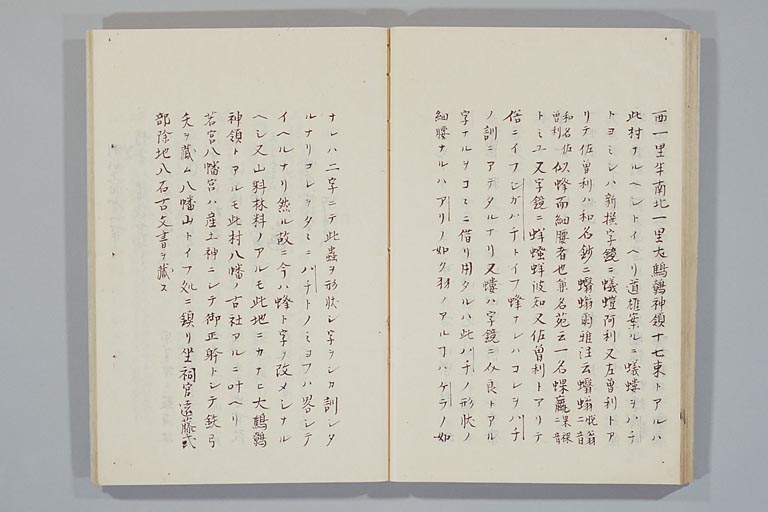 西一里半南北一里大鷦鷯神領十七束トアルハ
此村ナルヘシトイヘリ道雄案ルニ蟻螻ヲハチ
トヨミシハ新撰字鏡ニ蟻螘阿利又左曽利トア
リテ佐曽利ハ和名鈔ニ蠮螉爾雅注云蠮螉悦翁二音
和名佐曽利似蜂而細腰者也兼名苑云一名蜾蠃果裸二音
トミユ又字鏡ニ蜂𧒒蜂波知又佐曽利トアリテ
俗ニイフジガバチトイフ蜂ナレハコレヲハチ
ノ訓ニアテタルナリ又螻ハ字鏡ニ介良トアル
字ナルヲコヽニ借リ用タルハ此ハチノ形状ノ
細腰ナルハアリノ如ク羽ノアルコハケラノ如
ナレハ二字ニテ此蟲ヲ形状シ字ヲシカ訓シタ
ルナリコレヲタヽニハチトノミヨフハ畧シテ
イヘルナリ然ル故ニ今ハ蜂ト字ヲ改メシナル
ヘシ又山料林料ノアルモ此地ニカナヒ大鷦鷯
神領トアルモ此村八幡ノ古社アルニ叶ヘリ
若宮八幡宮ハ産土神ニシテ御正躰トシテ鉄弓
矢ヲ蔵ム八幡山トイフ処ニ鎮リ坐祠官遠藤式
部除地八石古文書ヲ蔵ス